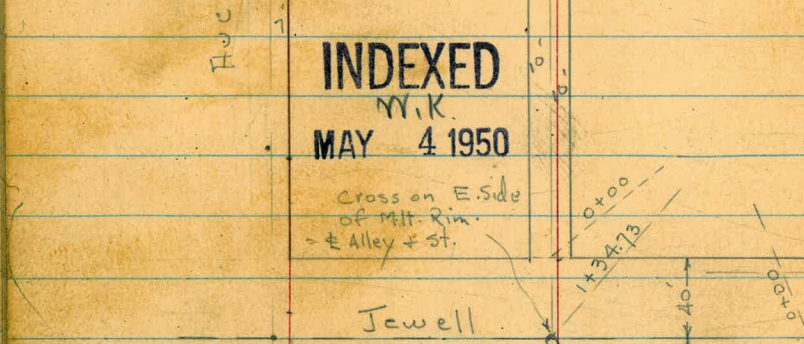 Ave
INDEXED
W.K.
MAY 4 1950
10'
10'
Cross on E. Side
of M.H. Rim.
= ℄ Alley & St.
0+00
1+34.73
Jewell
40'
0+00